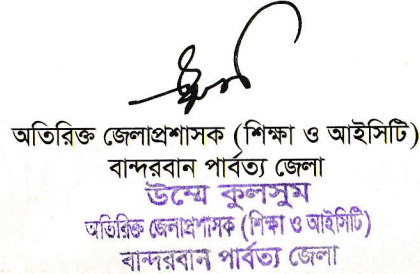 অতিরিক্ত জেলাপ্রশাসক (শিক্ষা ও আইসিটি)
বান্দরবান পার্বত্য জেলা
উম্মে কুলসুম
অতিরিক্ত জেলাপ্রশাসক (শিক্ষা ও আইসিটি)
বান্দরবান পার্বত্য জেলা